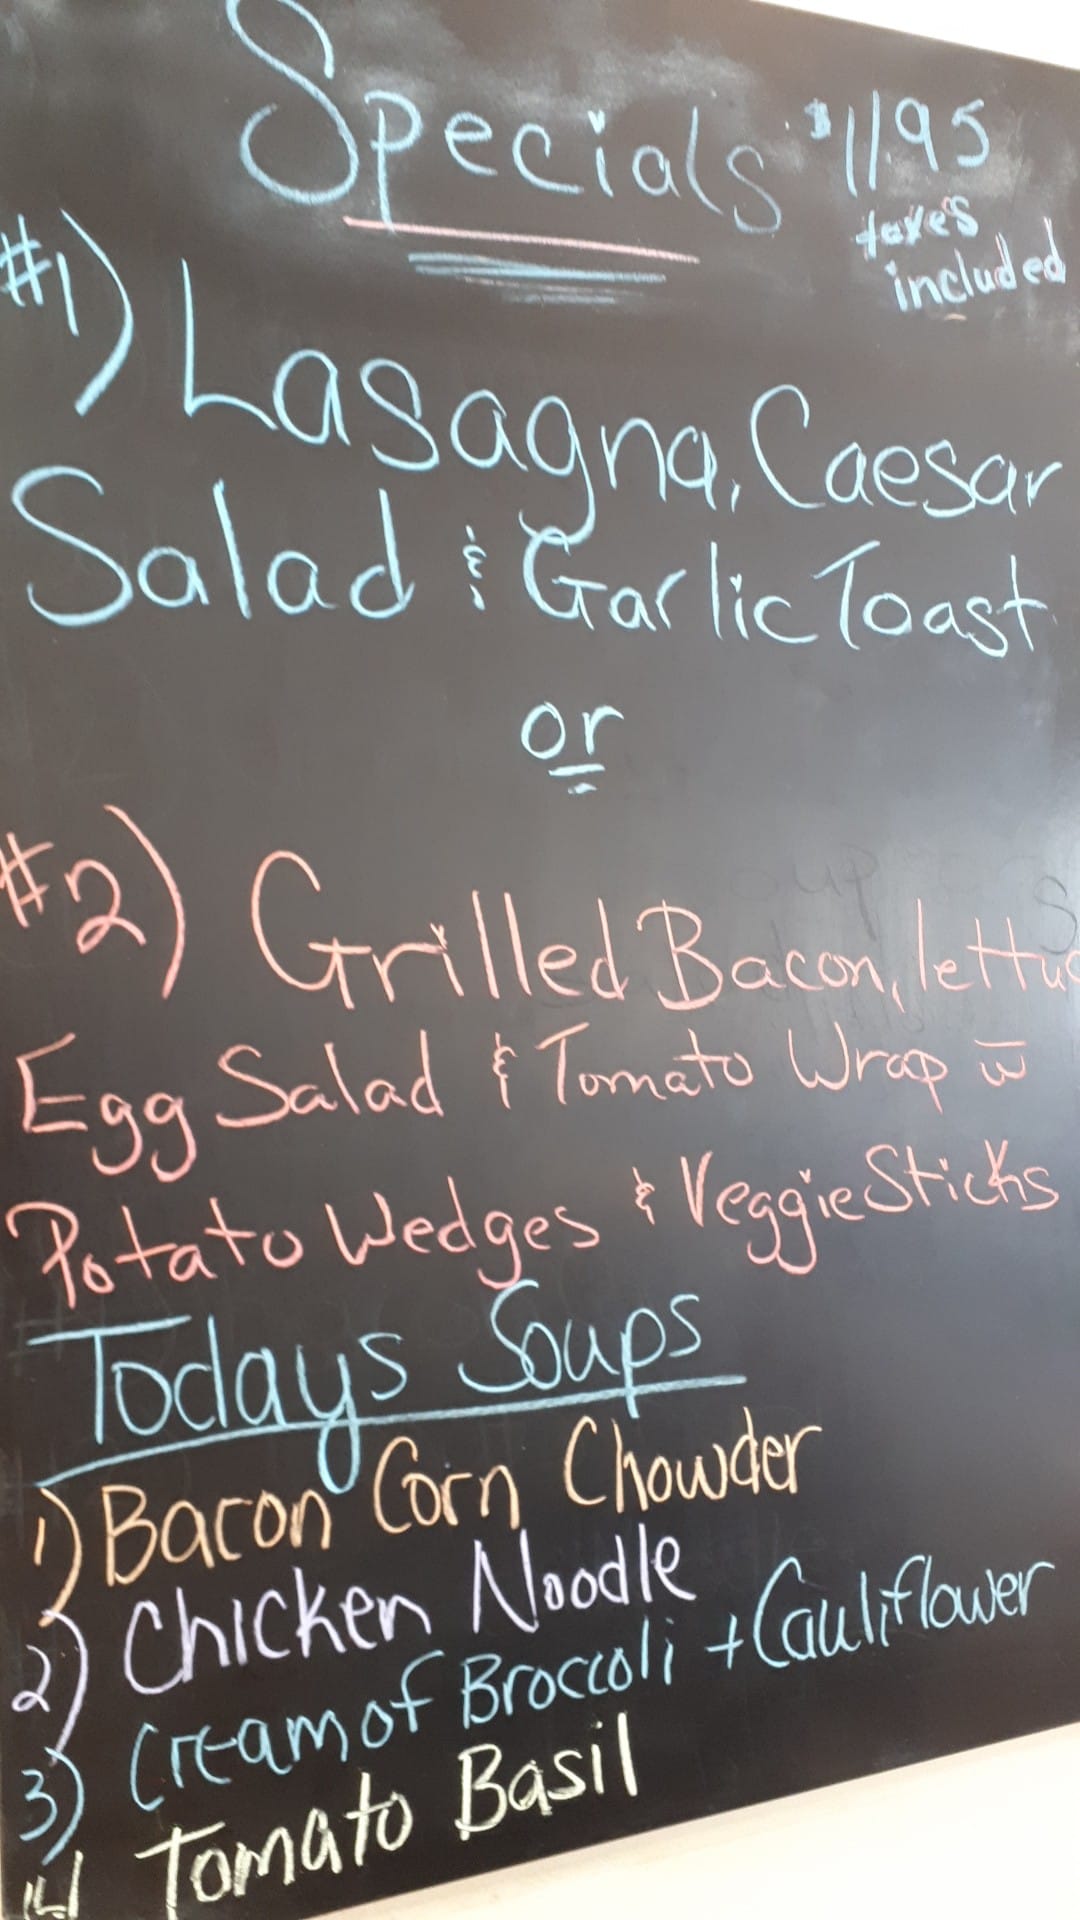 Specials $11.95
taxes
included
#1) Lasagna, Caesar
Salad & Garlic Toast
or
#2) Grilled Bacon, lettuc
Egg Salad & Tomato Wrap w
Potato Wedges & Veggie Sticks
Todays Soups
1) Bacon Corn Chowder
2) Chicken Noodle
3) Cream of Broccoli + Cauliflower
4) Tomato Basil